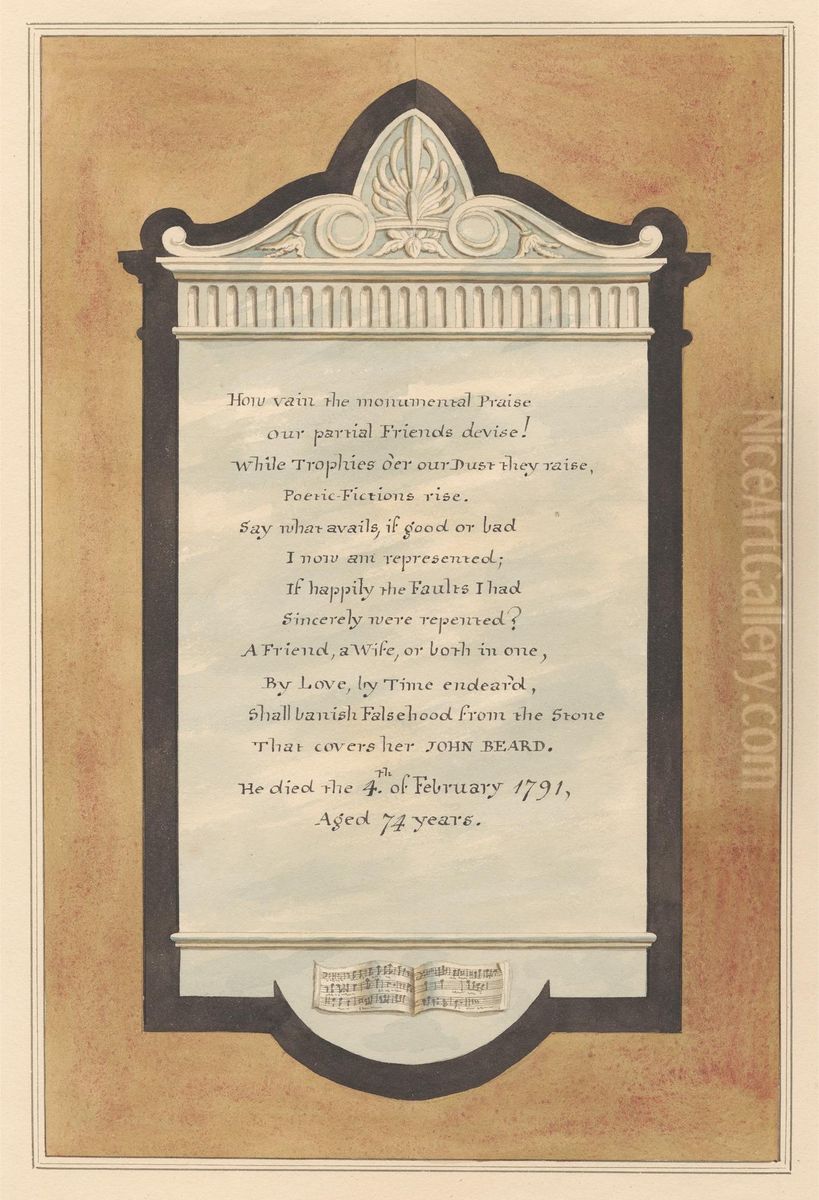 How vain the monumental Praise
our partial Friends devise!
While Trophies o'er our Dust they raise,
Poetic-Fictions rise.
Say what avails, if good or bad
I now am represented;
If happily the Faults I had
Sincerely were repented?
A Friend, a Wife, or both in one,
By Love, by Time endear'd,
Shall banish Falsehood from the Stone
That covers her JOHN BEARD.
He died the 4.th of February 1791,
Aged 74 years.
NiceArtGallery.com